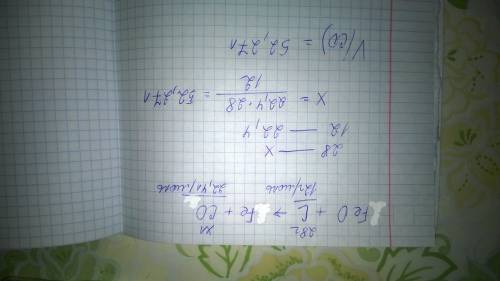 28г xл
FeO + C → Fe + CO
12г/моль 22,4л/моль
28 — x
12 — 22,4
x = 22,4·28 / 12 = 52,27л
V(CO) = 52,27л